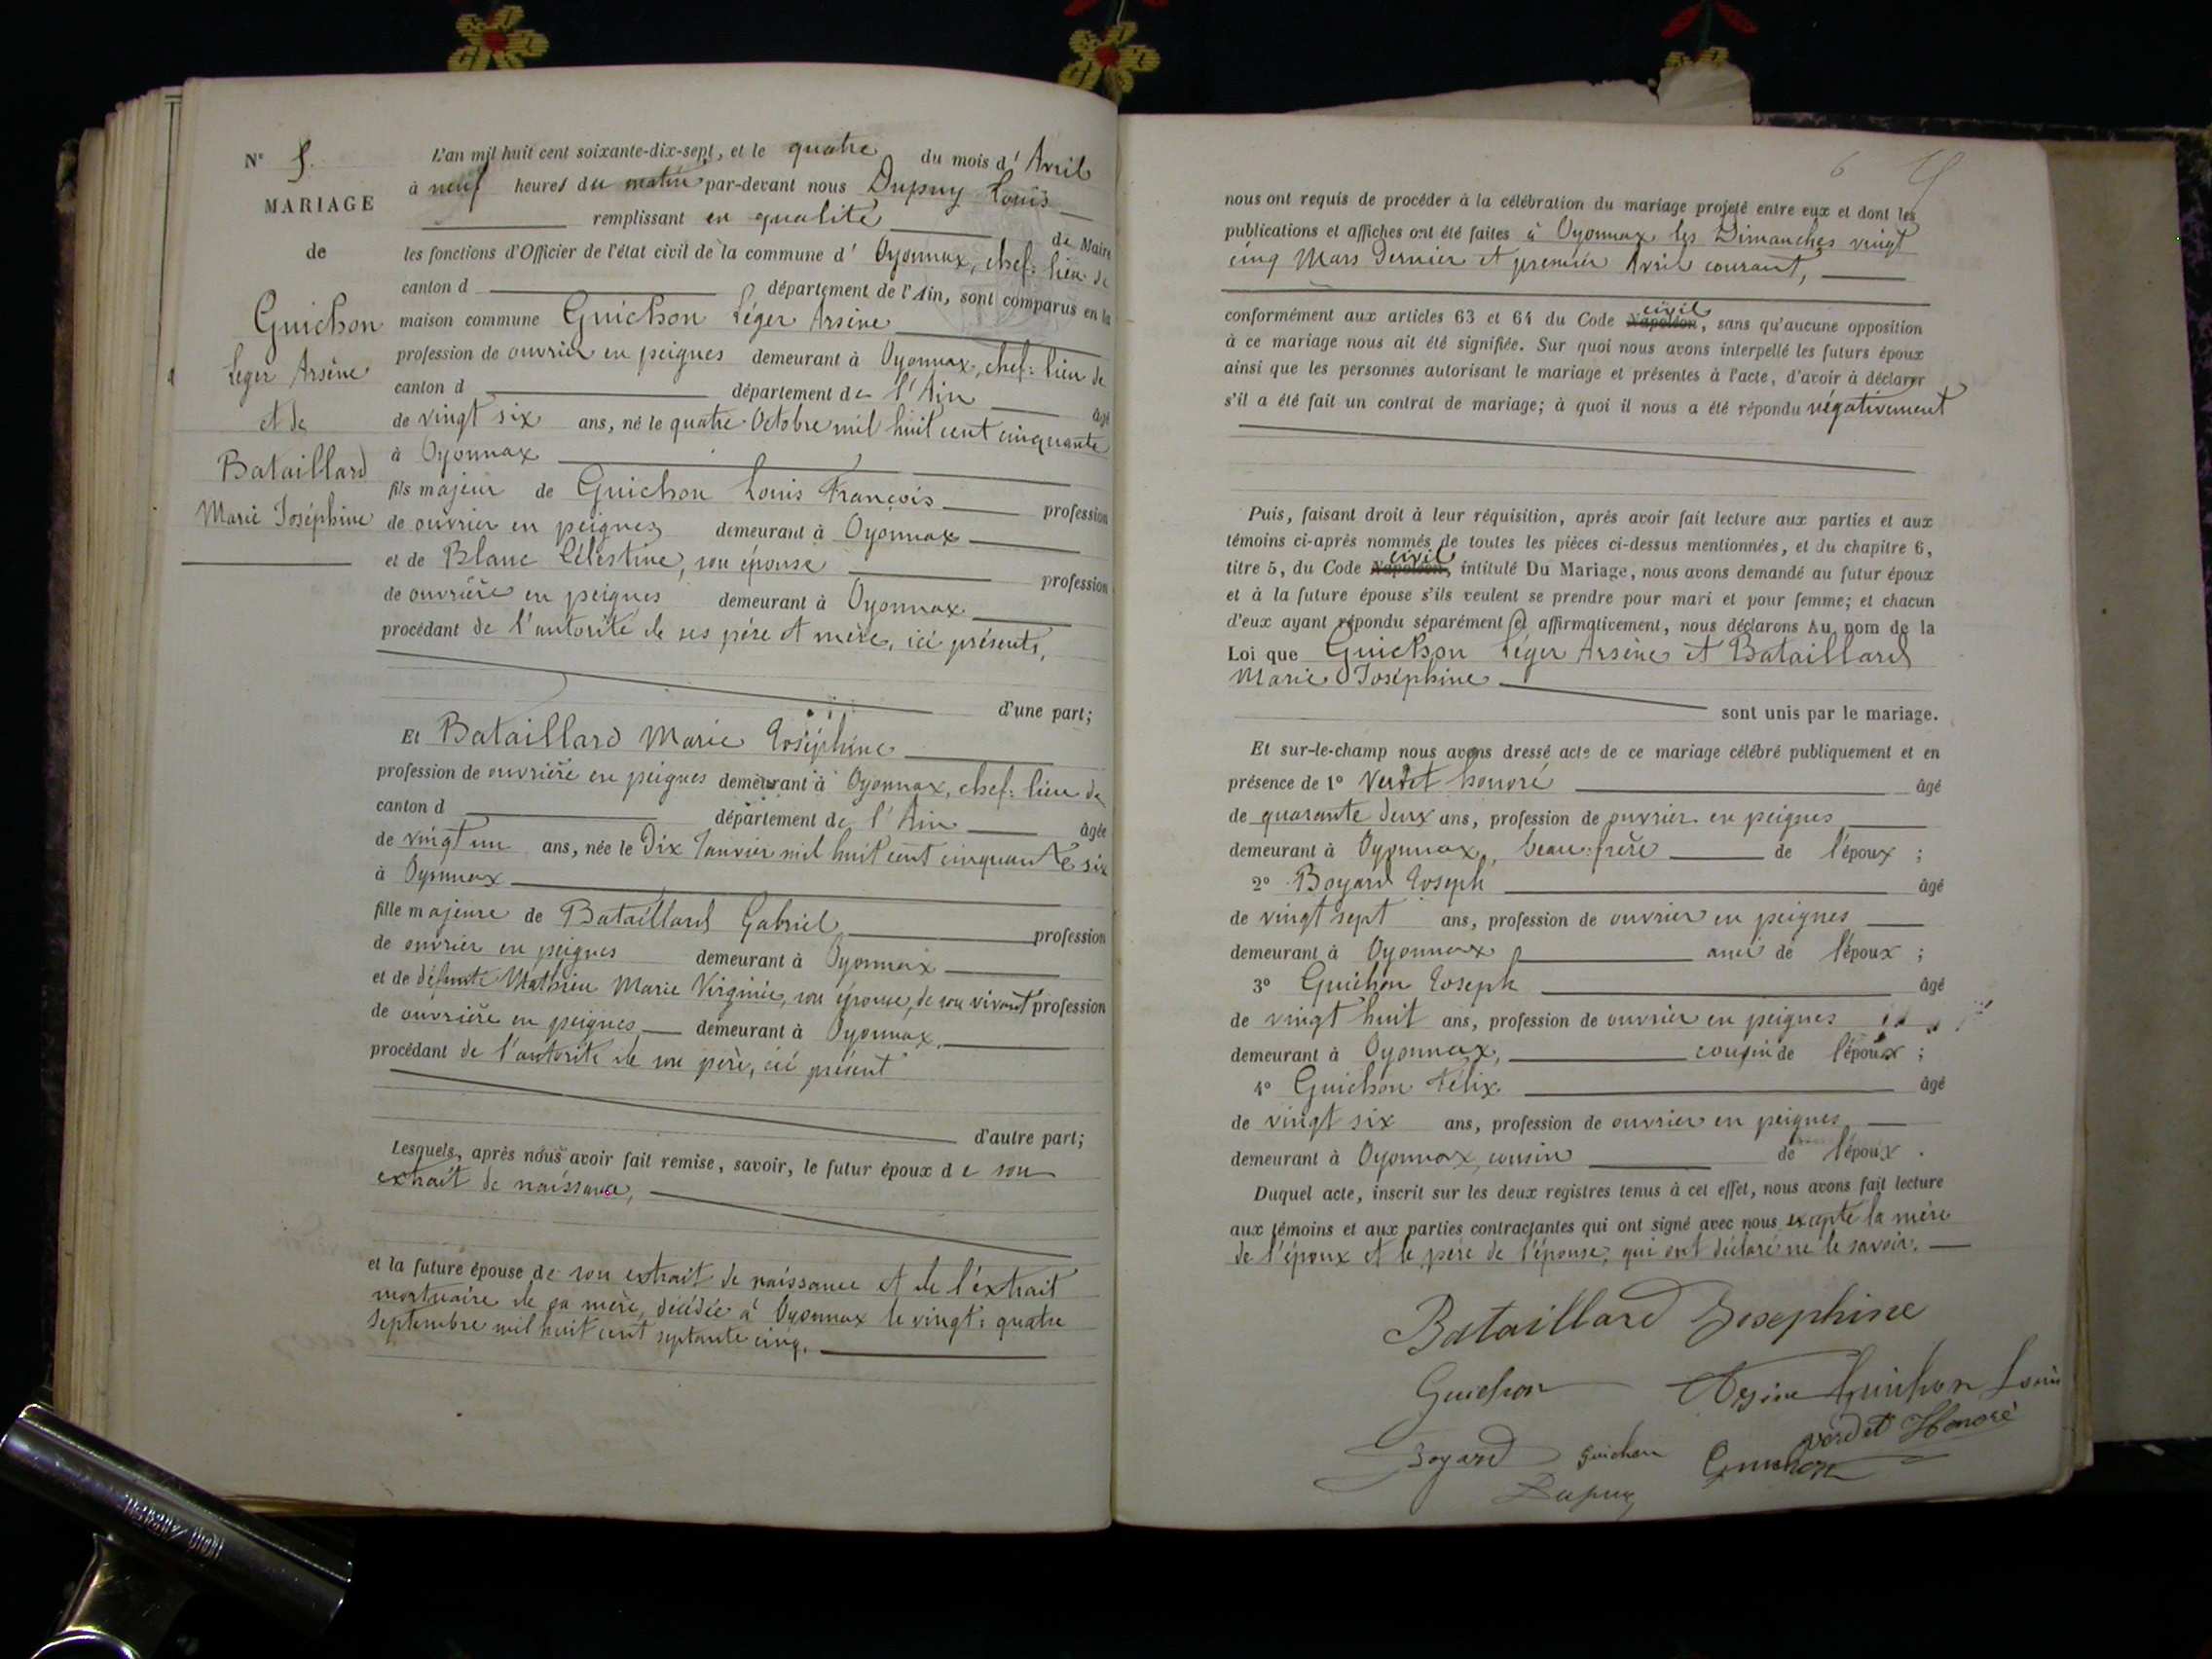 N° 5.
MARIAGE
de
Guichon
Léger Arsène
et de
Bataillard
Marie Joséphine
L'an mil huit cent soixante-dix-sept, et le quatre du mois d'Avril
à neuf heures du matin par-devant nous Dupuy Louis
remplissant en qualité de Maire
les fonctions d'Officier de l'état civil de la commune d'Oyonnax, chef-lieu de
canton d département de l'Ain, sont comparus en la
maison commune Guichon Léger Arsène
profession de ouvrier en peignes demeurant à Oyonnax, chef-lieu de
canton d département de l'Ain âgé
de vingt six ans, né le quatre Octobre mil huit cent cinquante
à Oyonnax
fils majeur de Guichon Louis François profession
de ouvrier en peignes demeurant à Oyonnax
et de Blanc Célestine, son épouse profession
de ouvrière en peignes demeurant à Oyonnax
procédant de l'autorité de ses père et mère, ici présents,
d'une part;
Et Bataillard Marie Joséphine
profession de ouvrière en peignes demeurant à Oyonnax, chef-lieu de
canton d département de l'Ain âgée
de vingt un ans, née le Dix Janvier mil huit cent cinquante six
à Oyonnax
fille majeure de Bataillard Gabriel profession
de ouvrier en peignes demeurant à Oyonnax
et de défunte Mathieu Marie Virginie, son épouse, de son vivant profession
de ouvrière en peignes demeurant à Oyonnax,
procédant de l'autorité de son père, ici présent
d'autre part;
Lesquels, après nous avoir fait remise, savoir, le futur époux de son
extrait de naissance,
et la future épouse de son extrait de naissance et de l'extrait
mortuaire de sa mère, décédée à Oyonnax le vingt-quatre
Septembre mil huit cent septante cinq.
6
nous ont requis de procéder à la célébration du mariage projeté entre eux et dont les
publications et affiches ont été faites à Oyonnax les Dimanches vingt
cinq Mars Dernier et premier Avril courant,
civil
conformément aux articles 63 et 64 du Code Napoléon, sans qu'aucune opposition
à ce mariage nous ait été signifiée. Sur quoi nous avons interpellé les futurs époux
ainsi que les personnes autorisant le mariage et présentes à l'acte, d'avoir à déclarer
s'il a été fait un contrat de mariage; à quoi il nous a été répondu négativement
Puis, faisant droit à leur réquisition, après avoir fait lecture aux parties et aux
témoins ci-après nommés de toutes les pièces ci-dessus mentionnées, et du chapitre 6,
civil
titre 5, du Code Napoléon, intitulé Du Mariage, nous avons demandé au futur époux
et à la future épouse s'ils veulent se prendre pour mari et pour femme; et chacun
d'eux ayant répondu séparément et affirmativement, nous déclarons Au nom de la
Loi que Guichon Léger Arsène et Bataillard
Marie Joséphine
sont unis par le mariage.
Et sur-le-champ nous avons dressé acte de ce mariage célébré publiquement et en
présence de 1° Verdet honoré âgé
de quarante deux ans, profession de ouvrier en peignes
demeurant à Oyonnax, beau-frère de l'époux ;
2° Boyard Joseph âgé
de vingt sept ans, profession de ouvrier en peignes
demeurant à Oyonnax ami de l'époux ;
3° Guichon Joseph âgé
de vingt huit ans, profession de ouvrier en peignes
demeurant à Oyonnax, cousin de l'époux ;
4° Guichon Félix âgé
de vingt six ans, profession de ouvrier en peignes
demeurant à Oyonnax, cousin de l'époux .
Duquel acte, inscrit sur les deux registres tenus à cet effet, nous avons fait lecture
aux témoins et aux parties contractantes qui ont signé avec nous excepté la mère
de l'époux et le père de l'épouse, qui ont déclaré ne le savoir.
Bataillard Josephine
Guichon Arsène Guichon Louis
verdet Honoré
Boyard Guichon Guichon
Dupuy